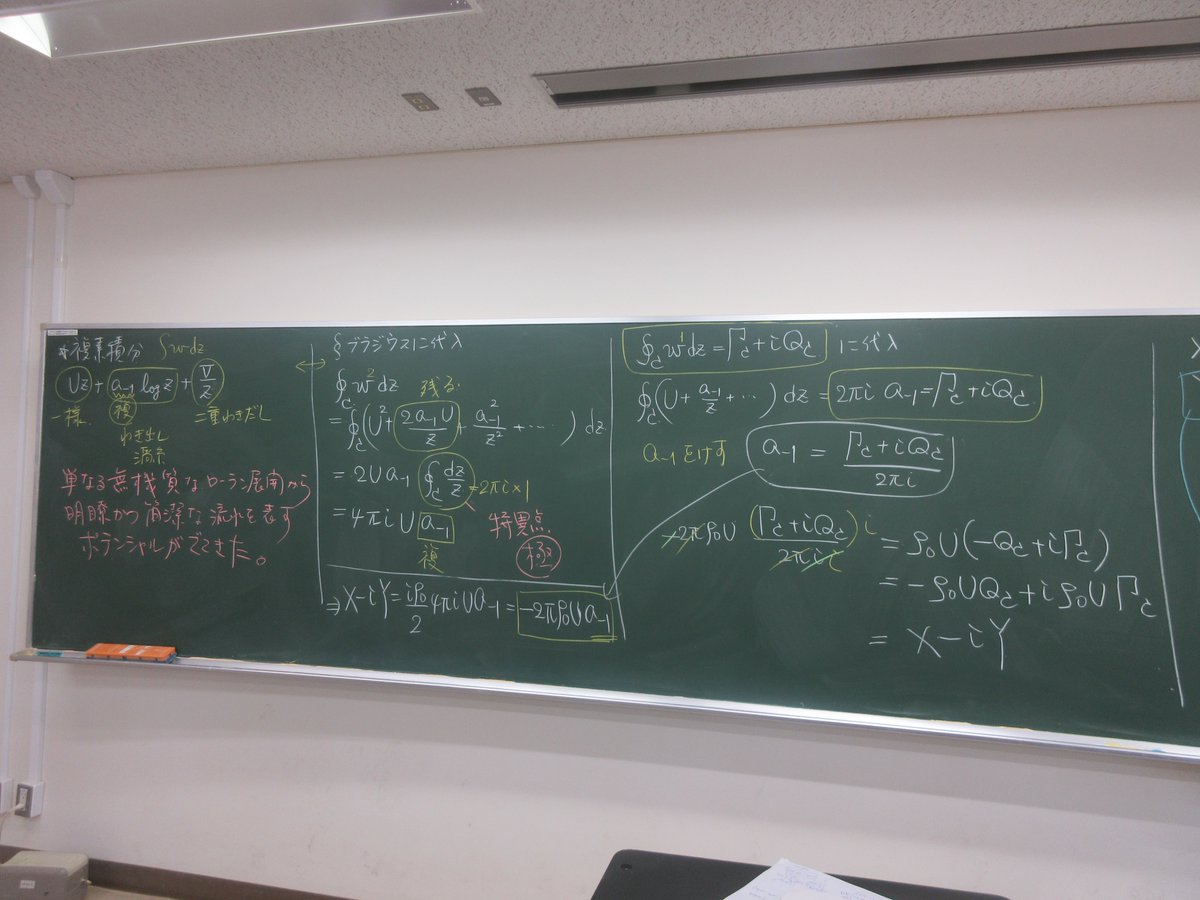 *複素積分 ∫w dz
Uz + a₋₁ log z + V/z
一様 複 二重わきだし
わき出し
渦糸
単なる無機質なローラン展開から
明瞭かつ簡潔な流れを表す
ポテンシャルがでてきた。
§ブラジウスに代入
∮_C w² dz 残る
= ∮_C (U² + 2a₋₁U/z + a₋₁²/z² + ⋯) dz
= 2Ua₋₁ ∮_C dz/z = 2πi×1
= 4πi U a₋₁ 特異点
複 極
⇒ X-iY = iρ₀/2 4πi U a₋₁ = -2πρ₀U a₋₁
∮_C w¹ dz = Γ_C + iQ_C に代入
∮_C (U + a₋₁/z + ⋯) dz = 2πi a₋₁ = Γ_C + iQ_C
a₋₁をけす a₋₁ = (Γ_C + iQ_C)/2πi
-2πρ₀U (Γ_C + iQ_C)i/2πi·i = ρ₀U(-Q_C + iΓ_C)
= -ρ₀UQ_C + iρ₀UΓ_C
= X-iY